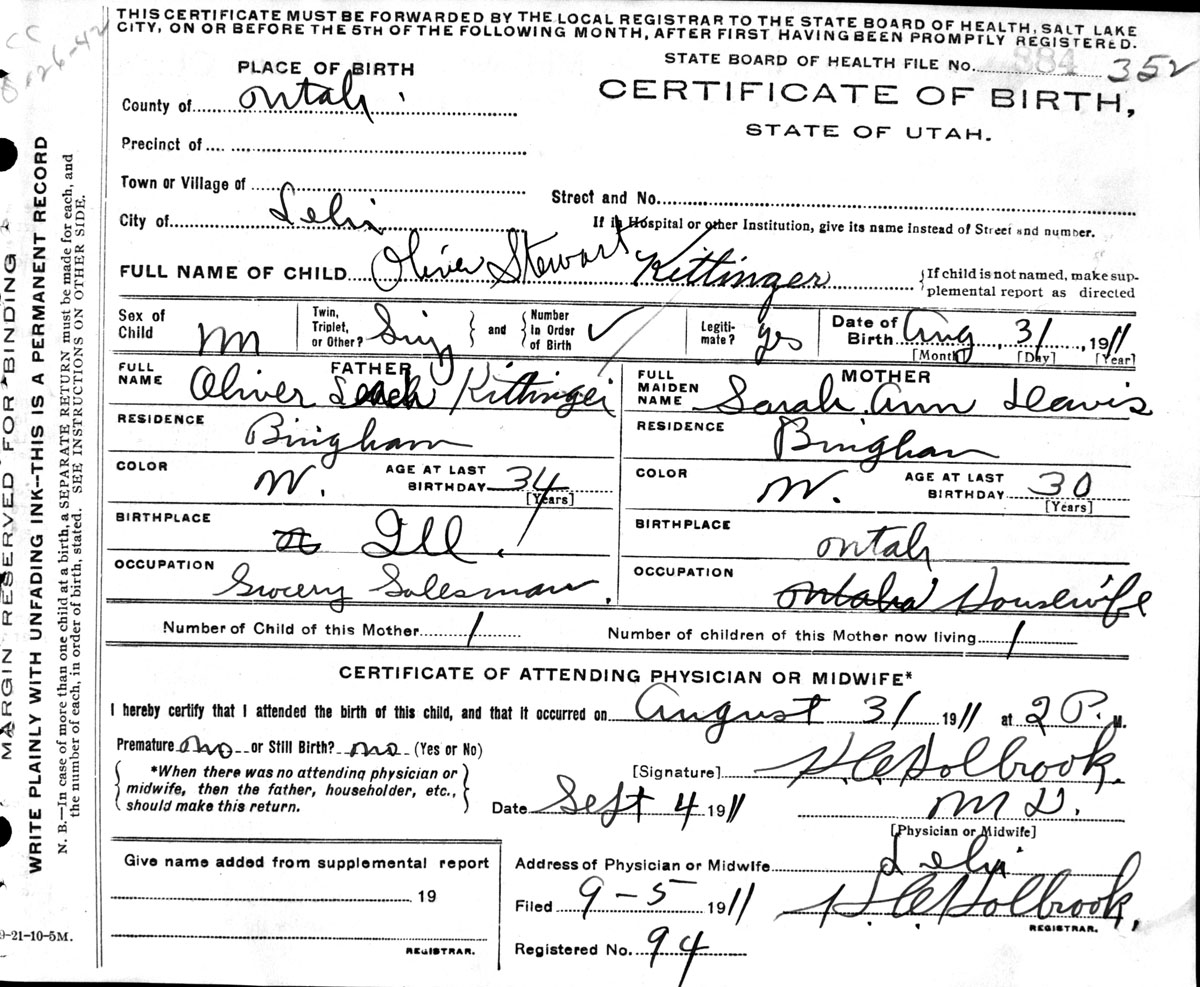 THIS CERTIFICATE MUST BE FORWARDED BY THE LOCAL REGISTRAR TO THE STATE BOARD OF HEALTH, SALT LAKE
CITY, ON OR BEFORE THE 5TH OF THE FOLLOWING MONTH, AFTER FIRST HAVING BEEN PROMPTLY REGISTERED.
STATE BOARD OF HEALTH FILE No. 884 352
CERTIFICATE OF BIRTH,
STATE OF UTAH.
PLACE OF BIRTH
County of Utah
Precinct of
Town or Village of
City of Lehi
Street and No.
If in Hospital or other Institution, give its name instead of Street and number.
FULL NAME OF CHILD Oliver Stewart Kittinger
{If child is not named, make sup-
plemental report as directed
Sex of Child m
Twin, Triplet, or Other? Sing } and { Number In Order of Birth ✓
Legiti-mate? yes
Date of Birth Aug, 31, 1911
[Month] [Day] [Year]
FATHER
FULL NAME Oliver Leach Kittinger
RESIDENCE Bingham
COLOR W. AGE AT LAST BIRTHDAY 34 [Years]
BIRTHPLACE Ill.
OCCUPATION Grocery Salesman.
MOTHER
FULL MAIDEN NAME Sarah Ann Leavis
RESIDENCE Bingham
COLOR W. AGE AT LAST BIRTHDAY 30 [Years]
BIRTHPLACE Utah
OCCUPATION Housewife
Number of Child of this Mother 1 Number of children of this Mother now living 1
CERTIFICATE OF ATTENDING PHYSICIAN OR MIDWIFE*
I hereby certify that I attended the birth of this child, and that it occurred on August 31 1911 at 2 P. M.
Premature no or Still Birth? no (Yes or No)
{*When there was no attending physician or
midwife, then the father, householder, etc.,
should make this return.}
[Signature] H.C. Holbrook.
Date Sept 4 1911 M D.
[Physician or Midwife]
Give name added from supplemental report
19
REGISTRAR.
Address of Physician or Midwife Lehi
Filed 9-5 1911 H.C. Holbrook,
REGISTRAR.
Registered No. 94
MARGIN RESERVED FOR BINDING
WRITE PLAINLY WITH UNFADING INK--THIS IS A PERMANENT RECORD
N. B.—In case of more than one child at a birth, a SEPARATE RETURN must be made for each, and
the number of each, in order of birth, stated. SEE INSTRUCTIONS ON OTHER SIDE.
9-21-10-5M.